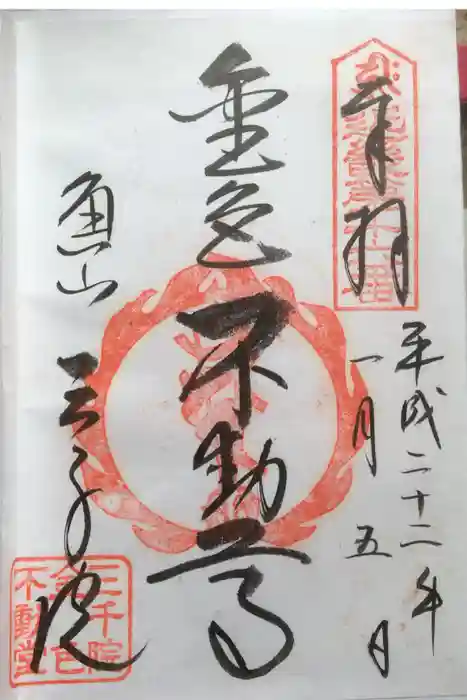 奉拝
平成二十二年
一月五日
金色不動尊
魚山
三千院
三千院
金色
不動堂